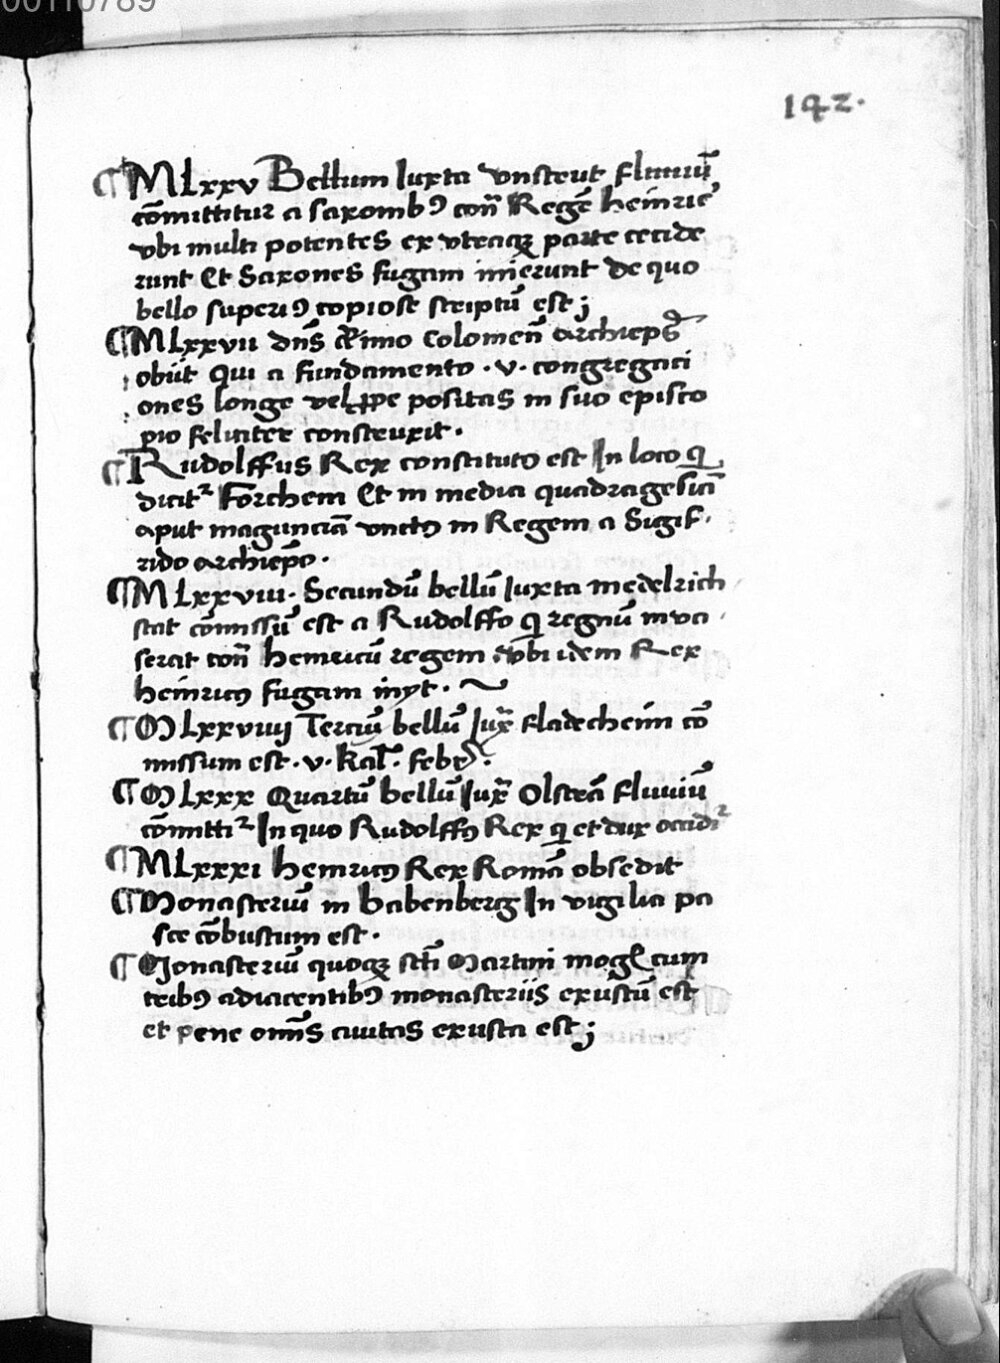 00110789
142.
¶ MLxxv Bellum Iuxta vnstrut fluuiū
cōmittitur a saxonibꝰ con̄ Regē heinric̄
vbi multi potentes ex vtraqꝫ parte cecide
runt Et Saxones fugam inierunt de quo
bello superiꝰ copiose scriptū est;
¶ MLxxvii dn̄s Anno Colonien̄ archiep̄s
obiit Qui a fundamento . v . congregaci
ones longe vel ꝓpe positas in suo episco
pio feliciter construxit .
¶ Rudolffus Rex constitutꝰ est In loco q̄
dicitᷣ Forchem Et in media quadragesiā
aput magunciā vnctꝰ in Regem a Sigif
rido archiep̄o .
¶ MLxxviii . Secundū bellū Iuxta medelrich
stat cōmissū est a Rudolffo q̄ regnū inua
serat con̄ heinricū regem vbi idem Rex
heinricꝰ fugam inyt .
¶ MLxxviiij Terciū bellū Iux̄ fladecheim cō
missum est . v . kal̄ . febr̄ .
¶ MLxxx Quartū bellū Iux̄ Olstrā fluuiū
cōmittiᷣ In quo Rudolffꝰ Rex q̄ et dux occidiᷣ
¶ MLxxxi heinricꝰ Rex Romā obsedit
¶ Monasteriū in babenberg In vigilia pa
sce cōbustum est .
¶ Monasteriū quoqꝫ sc̄ti Martini mogū cum
tribꝰ adiacentibꝰ monasteriis exustū est
et pene om̄s ciuitas exusta est;